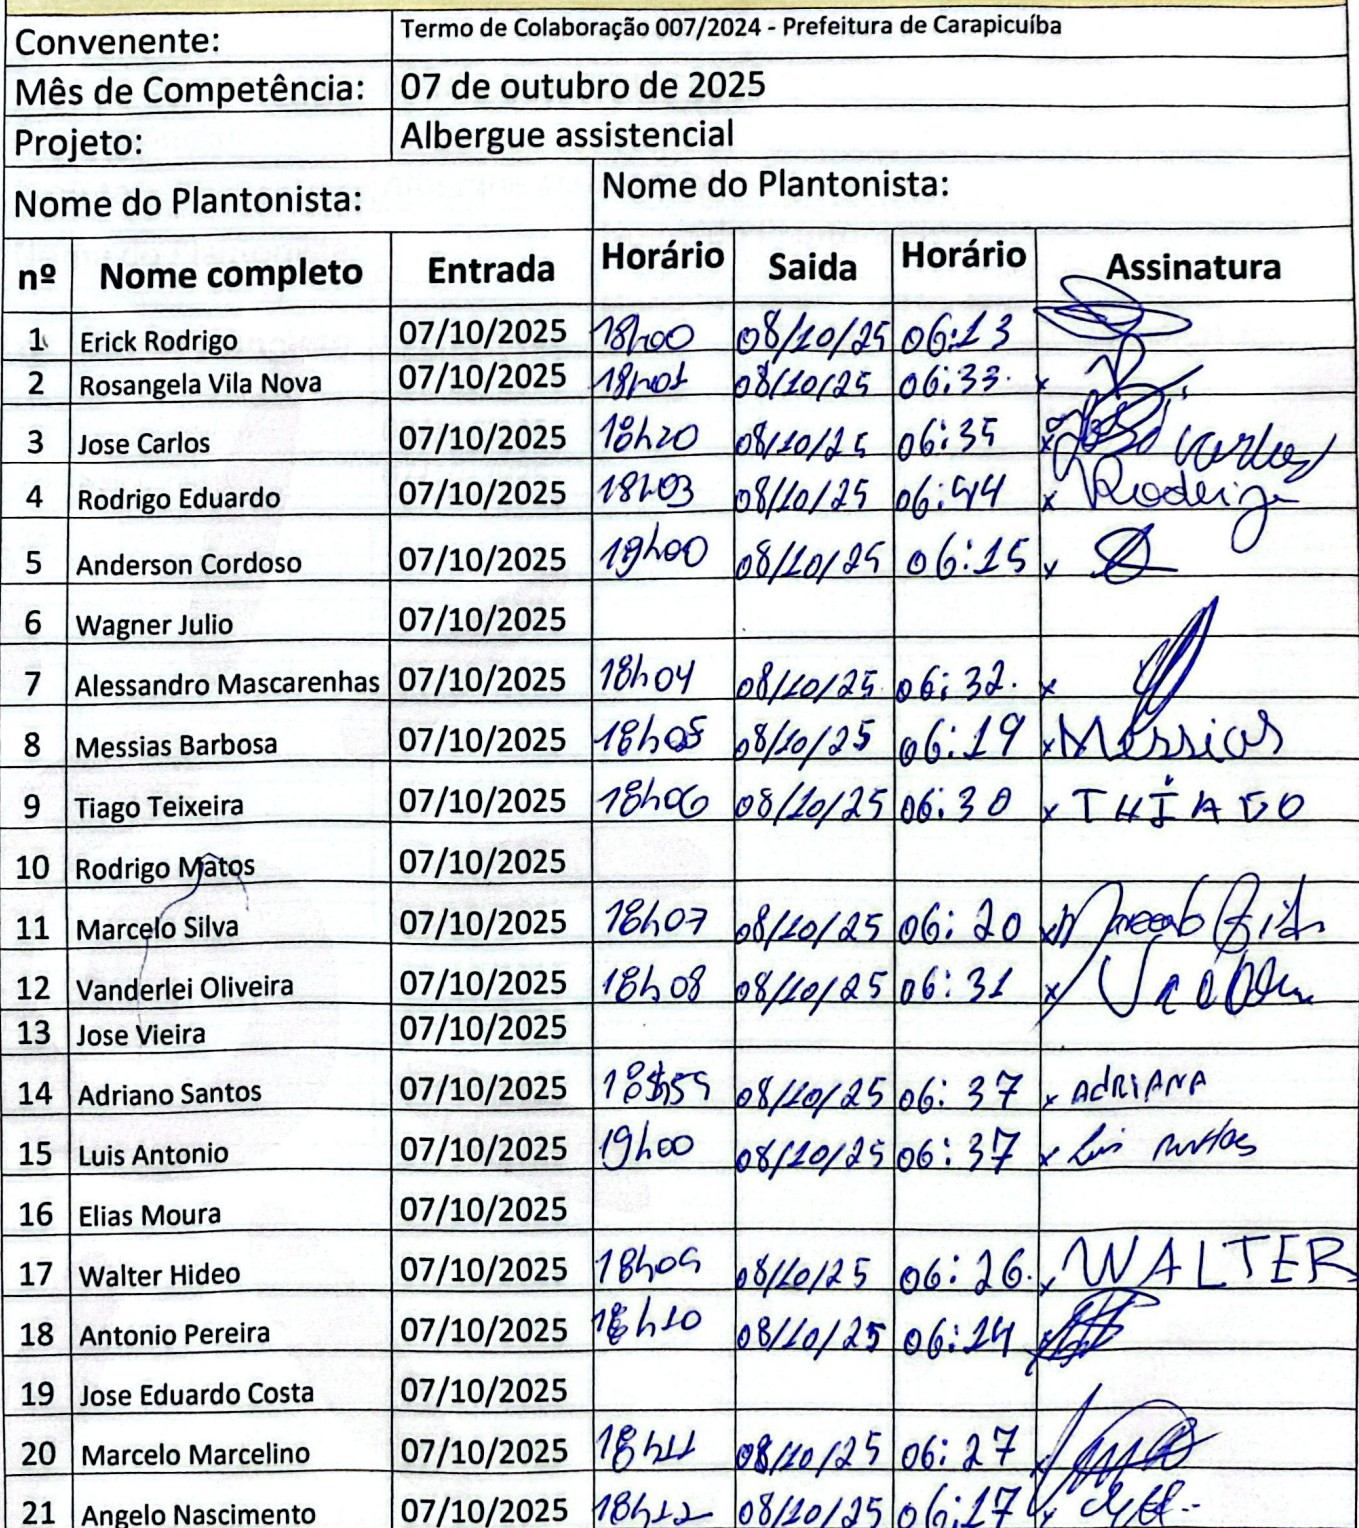 Convenente: Termo de Colaboração 007/2024 - Prefeitura de Carapicuíba
Mês de Competência: 07 de outubro de 2025
Projeto: Albergue assistencial
Nome do Plantonista: Nome do Plantonista:
nº Nome completo Entrada Horário Saida Horário Assinatura
1 Erick Rodrigo 07/10/2025 18h00 08/10/25 06:13
2 Rosangela Vila Nova 07/10/2025 18h01 08/10/25 06:33. x
3 Jose Carlos 07/10/2025 18h20 08/10/25 06:35 x Carlos
4 Rodrigo Eduardo 07/10/2025 18h03 08/10/25 06:44 x Rodrigo
5 Anderson Cordoso 07/10/2025 19h00 08/10/25 06:15 x
6 Wagner Julio 07/10/2025
7 Alessandro Mascarenhas 07/10/2025 18h04 08/10/25 06:32. x
8 Messias Barbosa 07/10/2025 18h05 08/10/25 06:19 x Messias
9 Tiago Teixeira 07/10/2025 18h06 08/10/25 06:30 x THIAGO
10 Rodrigo Matos 07/10/2025
11 Marcelo Silva 07/10/2025 18h07 08/10/25 06:20 x
12 Vanderlei Oliveira 07/10/2025 18h08 08/10/25 06:31 x
13 Jose Vieira 07/10/2025
14 Adriano Santos 07/10/2025 18h59 08/10/25 06:37 x ADRIANA
15 Luis Antonio 07/10/2025 19h00 08/10/25 06:37 x Luis
16 Elias Moura 07/10/2025
17 Walter Hideo 07/10/2025 18h09 08/10/25 06:26. x WALTER
18 Antonio Pereira 07/10/2025 18h10 08/10/25 06:14 x
19 Jose Eduardo Costa 07/10/2025
20 Marcelo Marcelino 07/10/2025 18h11 08/10/25 06:27 x
21 Angelo Nascimento 07/10/2025 18h12 08/10/25 06:17 x